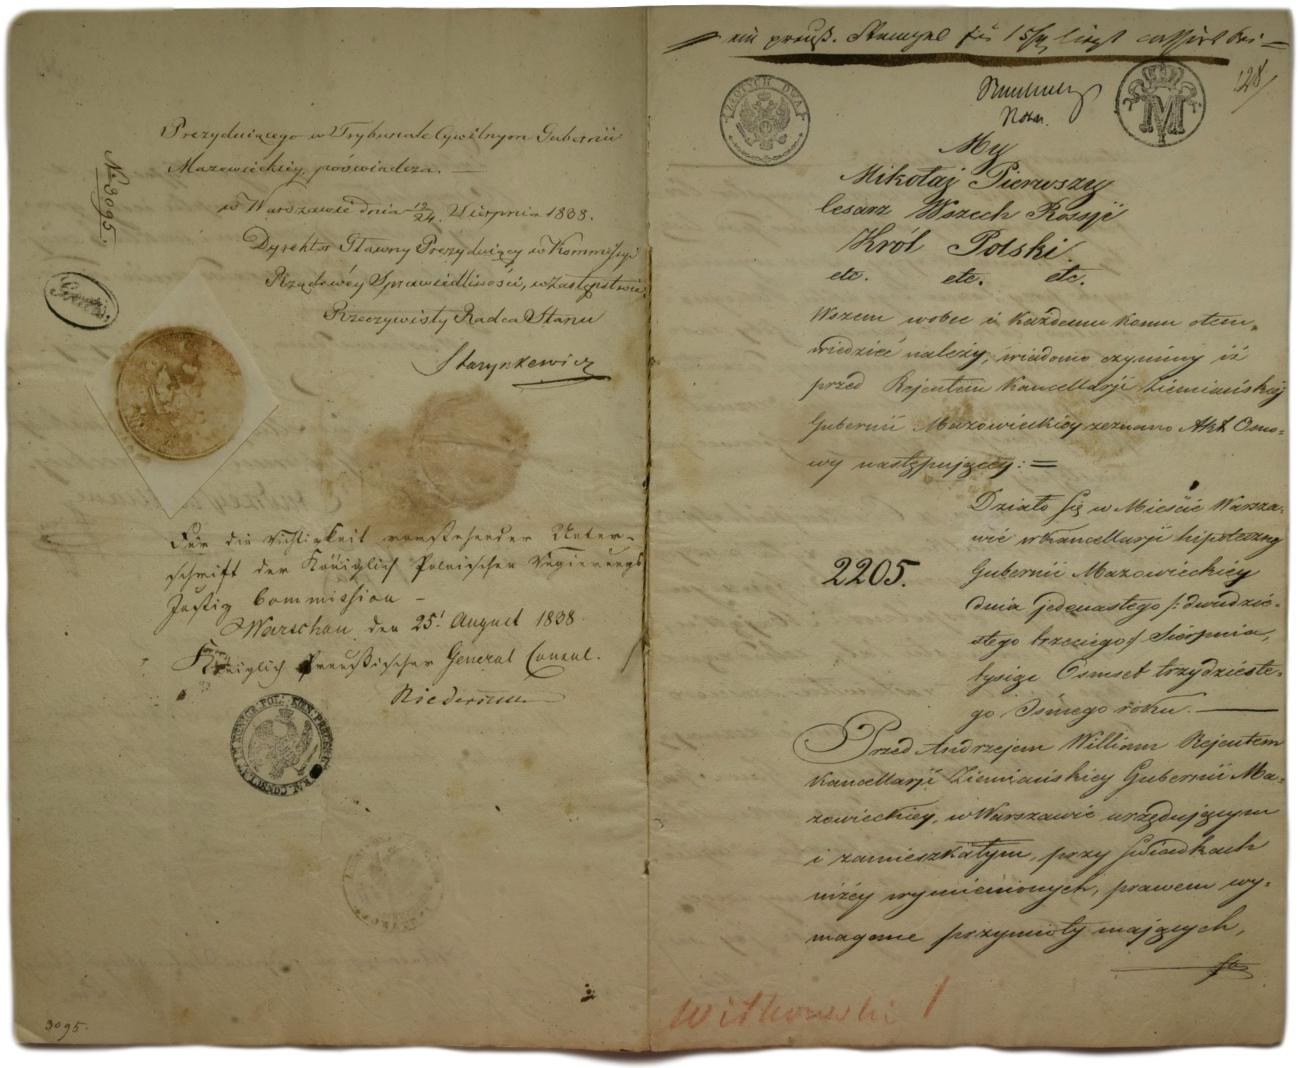 Prezyduiącego w Trybunale Cywilnym Gubernii
Mazowieckiey, poświadcza. —
No 3095.
w Warszawie dnia 12/24. Sierpnia 1838.
Dyrektor Głowny Prezyduiący w Kommissyi
Rządowéy Sprawiedliwości, w zastępstwie,
Rzeczywisty Radca Stanu
Starynkewicz
Für die Richtigkeit vorstehender Unter-
schrift der Königlich Polnischen Regierungs
Justiz Commission —
Warschau den 25t August 1838
Königlich Preußischer General Consul.
Niederstetter
3095.
ein preuß. Stempel für 15 Sg liegt cassirt bei =
128/
ZŁOTYCH DWA
M
Notar.
My
Mikołaj Pierwszy
Cesarz Wszech Rossji
Król Polski.
etc. etc. etc.
Wszem wobec i każdemu komu o tem
wiedzieć należy, wiadomo czynimy iż
przed Rejentem Kancellarji Ziemiańskiéj
Gubernii Mazowieckiey zeznano Akt Osno-
wy następuiącey: =
Działo się w Mieście Warsza-
wie w Kancellarji hipoteczney
2205.
Gubernii Mazowieckiey
dnia jedenastego /: dwudzie-
stego trzeciego / Sierpnia,
tysiąc Osmset trzydzieste-
go Osmego roku. —
Przed Andrzejem William Rejentem
Kancellarji Ziemiańskiey Gubernii Ma-
zowieckiey, w Warszawie urzęduiącym
i zamieszkałym, przy świadkach
niżéy wymienionych, prawem wy-
magane przymioty maiących,
Witkowski /